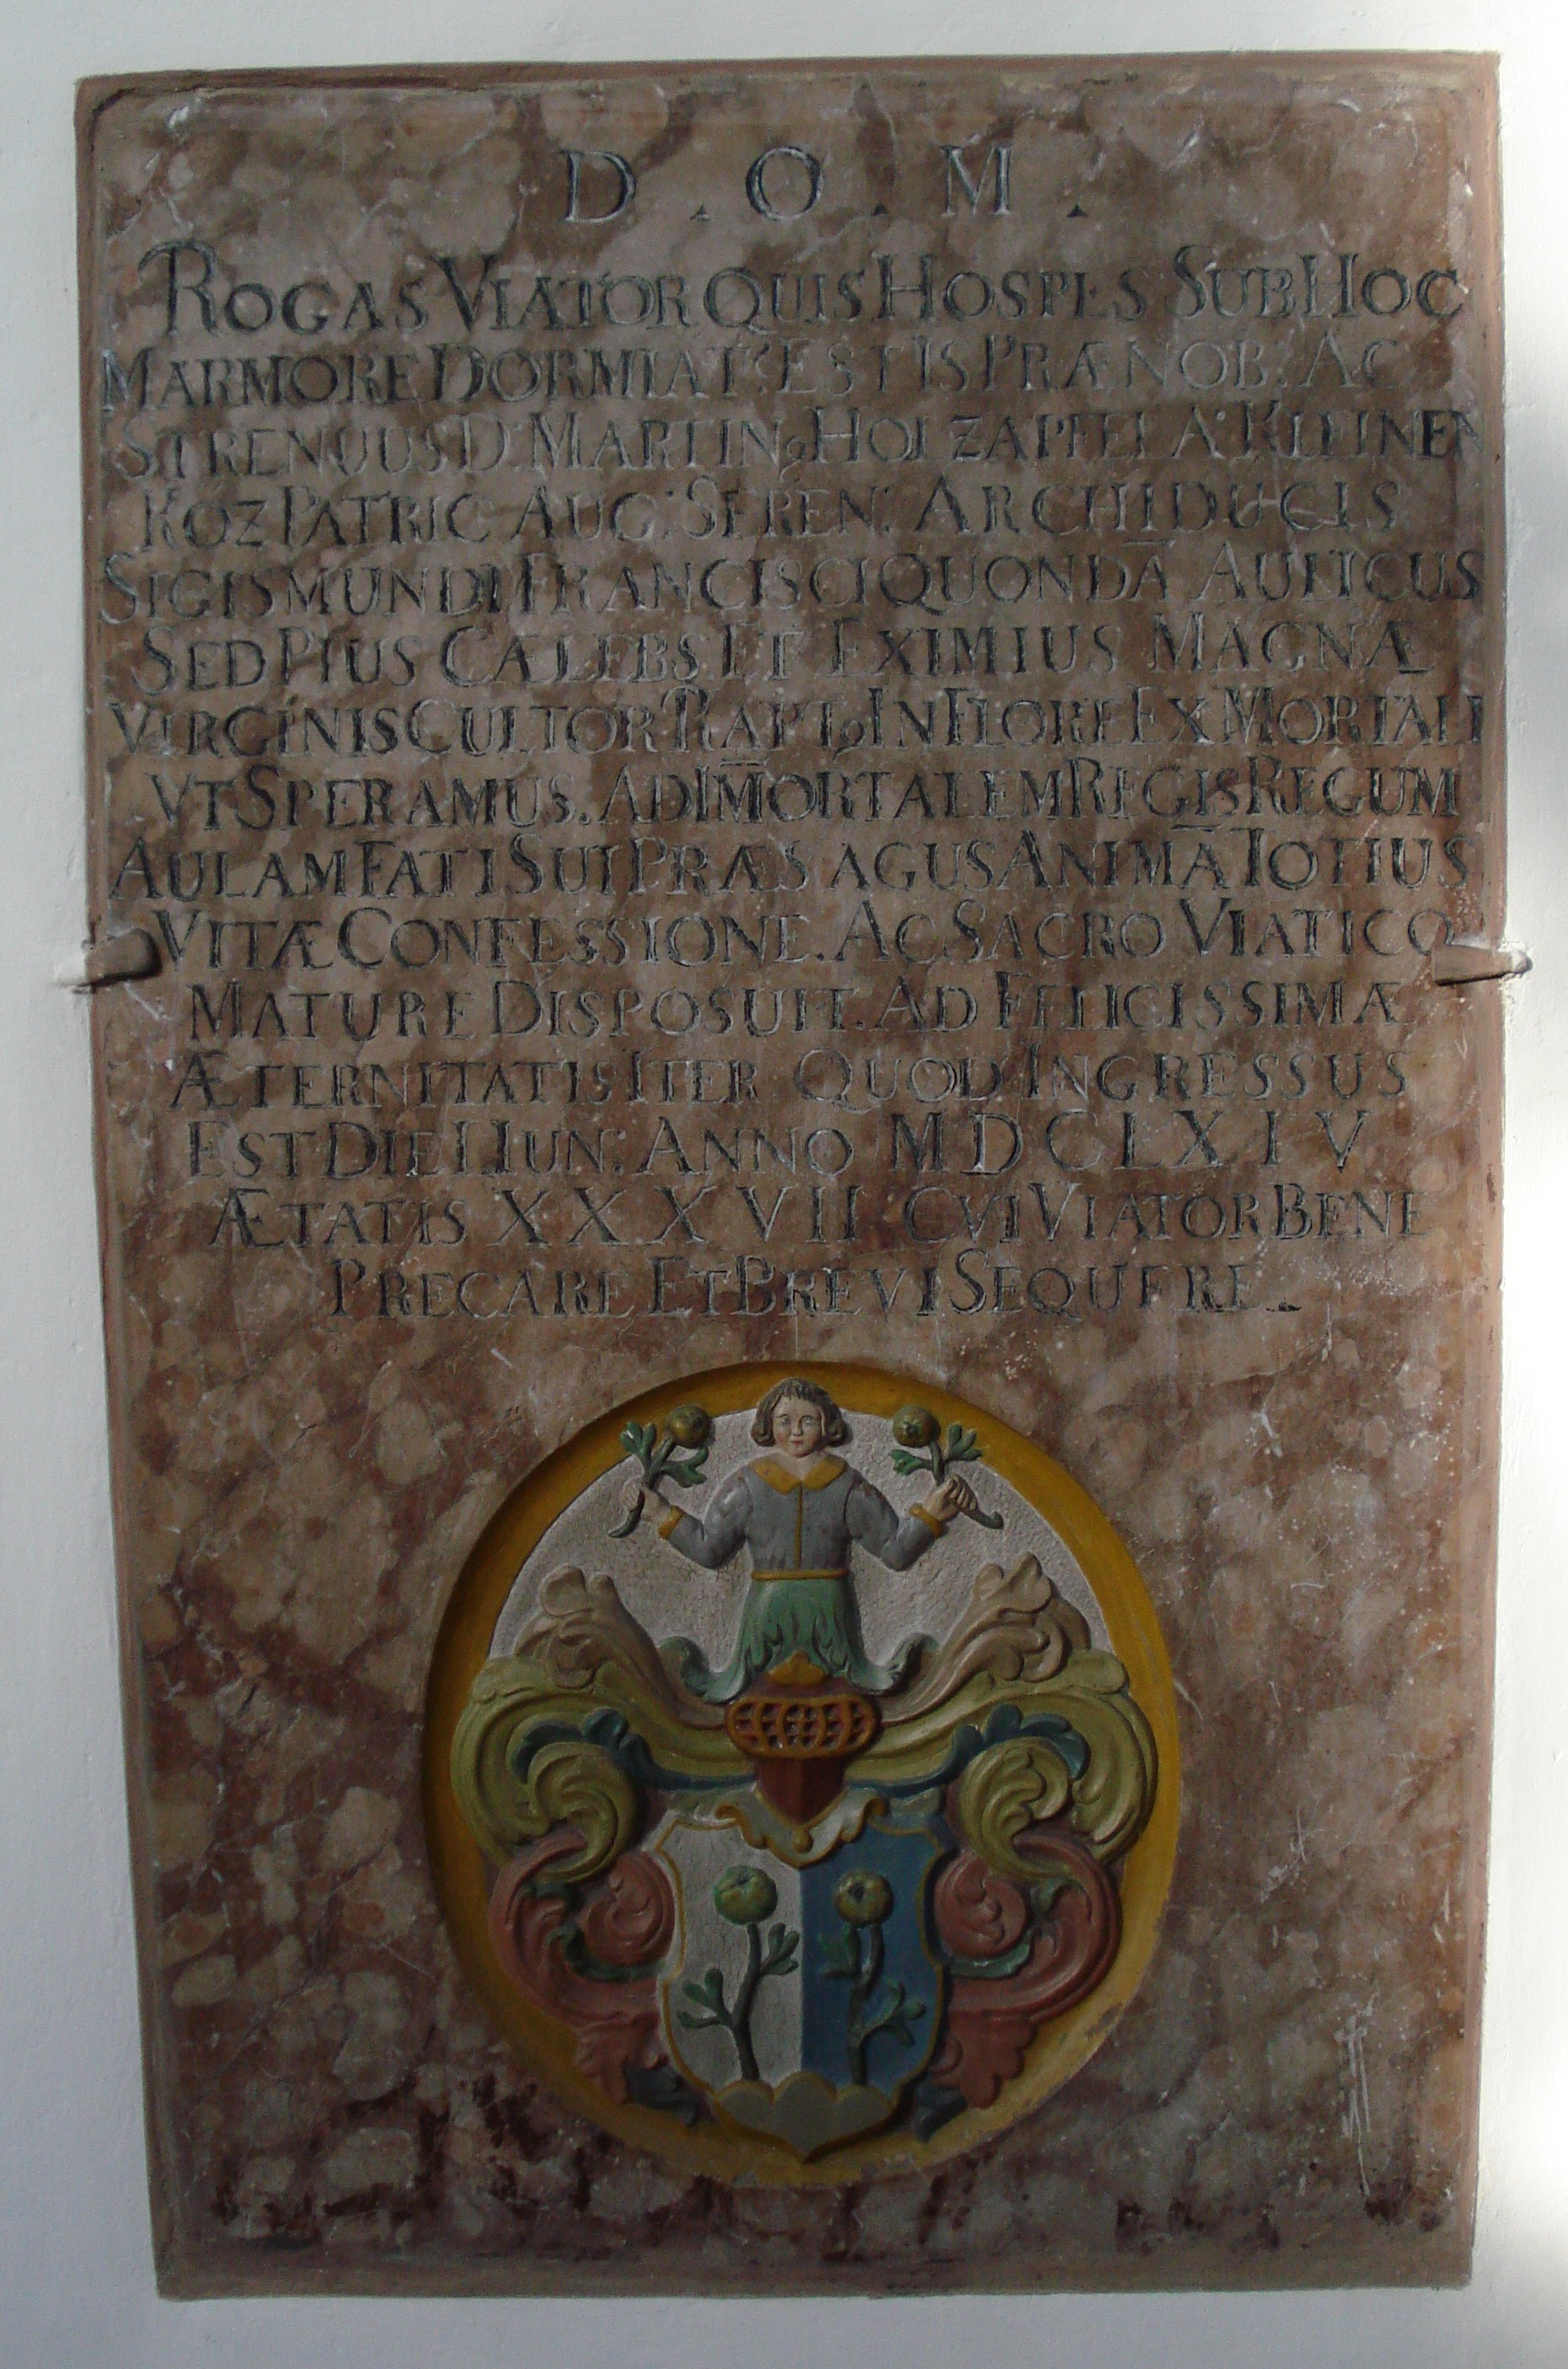 D . O . M .
ROGAS VIATOR QUIS HOSPES SUB HOC
MARMORE DORMIAT? EST IS PRÆNOB: AC
STRENUUS D: MARTINꝯ HOLZAPFEL A: KLEINEN
KÖZ PATRIC AUG: SEREN: ARCHIDUCIS
SIGISMUNDI FRANCISCI QUONDĀ AULICUS
SED PIUS CÆLEBS ET EXIMIUS MAGNÆ
VIRGINIS CULTOR RAPTꝯ IN FLORE EX MORTALI
VT SPERAMUS. AD IM̄ORTALEM REGIS REGUM
AULAM FATI SUI PRÆSAGUS ANIMĀ TOTIUS
VITÆ CONFESSIONE. AC SACRO VIATICO
MATURE DISPOSUIT. AD FELICISSIMÆ
ÆTERNITATIS ITER QUOD INGRESSUS
EST DIE I IUN: ANNO MDCLXIV
ÆTATIS XXXVII CVI VIATOR BENE
PRECARE ET BREVI SEQUERE.